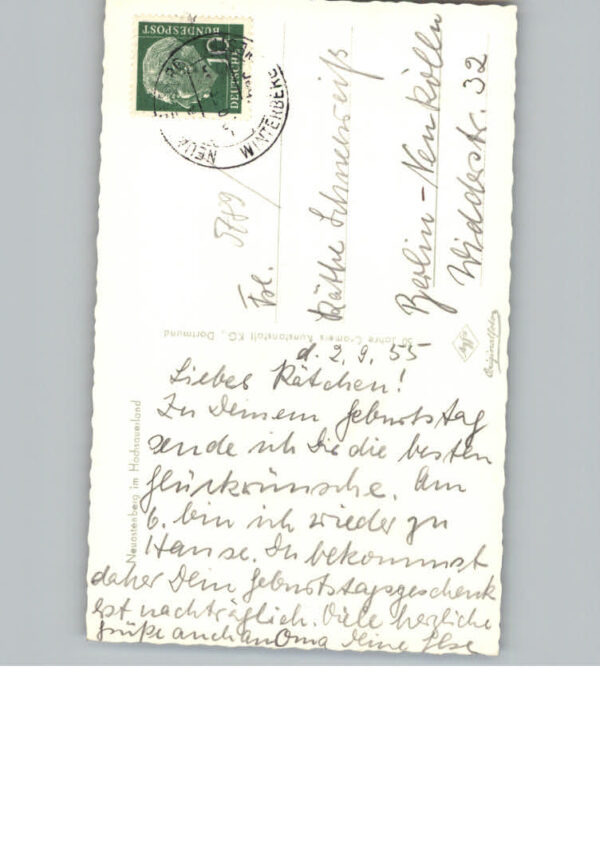 DEUTSCHE
BUNDESPOST
10
NEUA
WINTERBERG
Frl. 5789
Käthe Schneeweiß
Berlin-Neukölln
Widdestr. 32
50 Jahre Cramers Kunstanstalt KG., Dortmund
Agfa
Originalfoto
Neuastenberg im Hochsauerland
d. 2.9.55
Liebes Kätchen!
Zu Deinem Geburtstag
sende ich Dir die besten
Glückwünsche. Am
6. bin ich wieder zu
Hause. Du bekommst
daher Dein Geburtstagsgeschenk
erst nachträglich. Viele herzliche
Grüße auch an Oma Deine Else